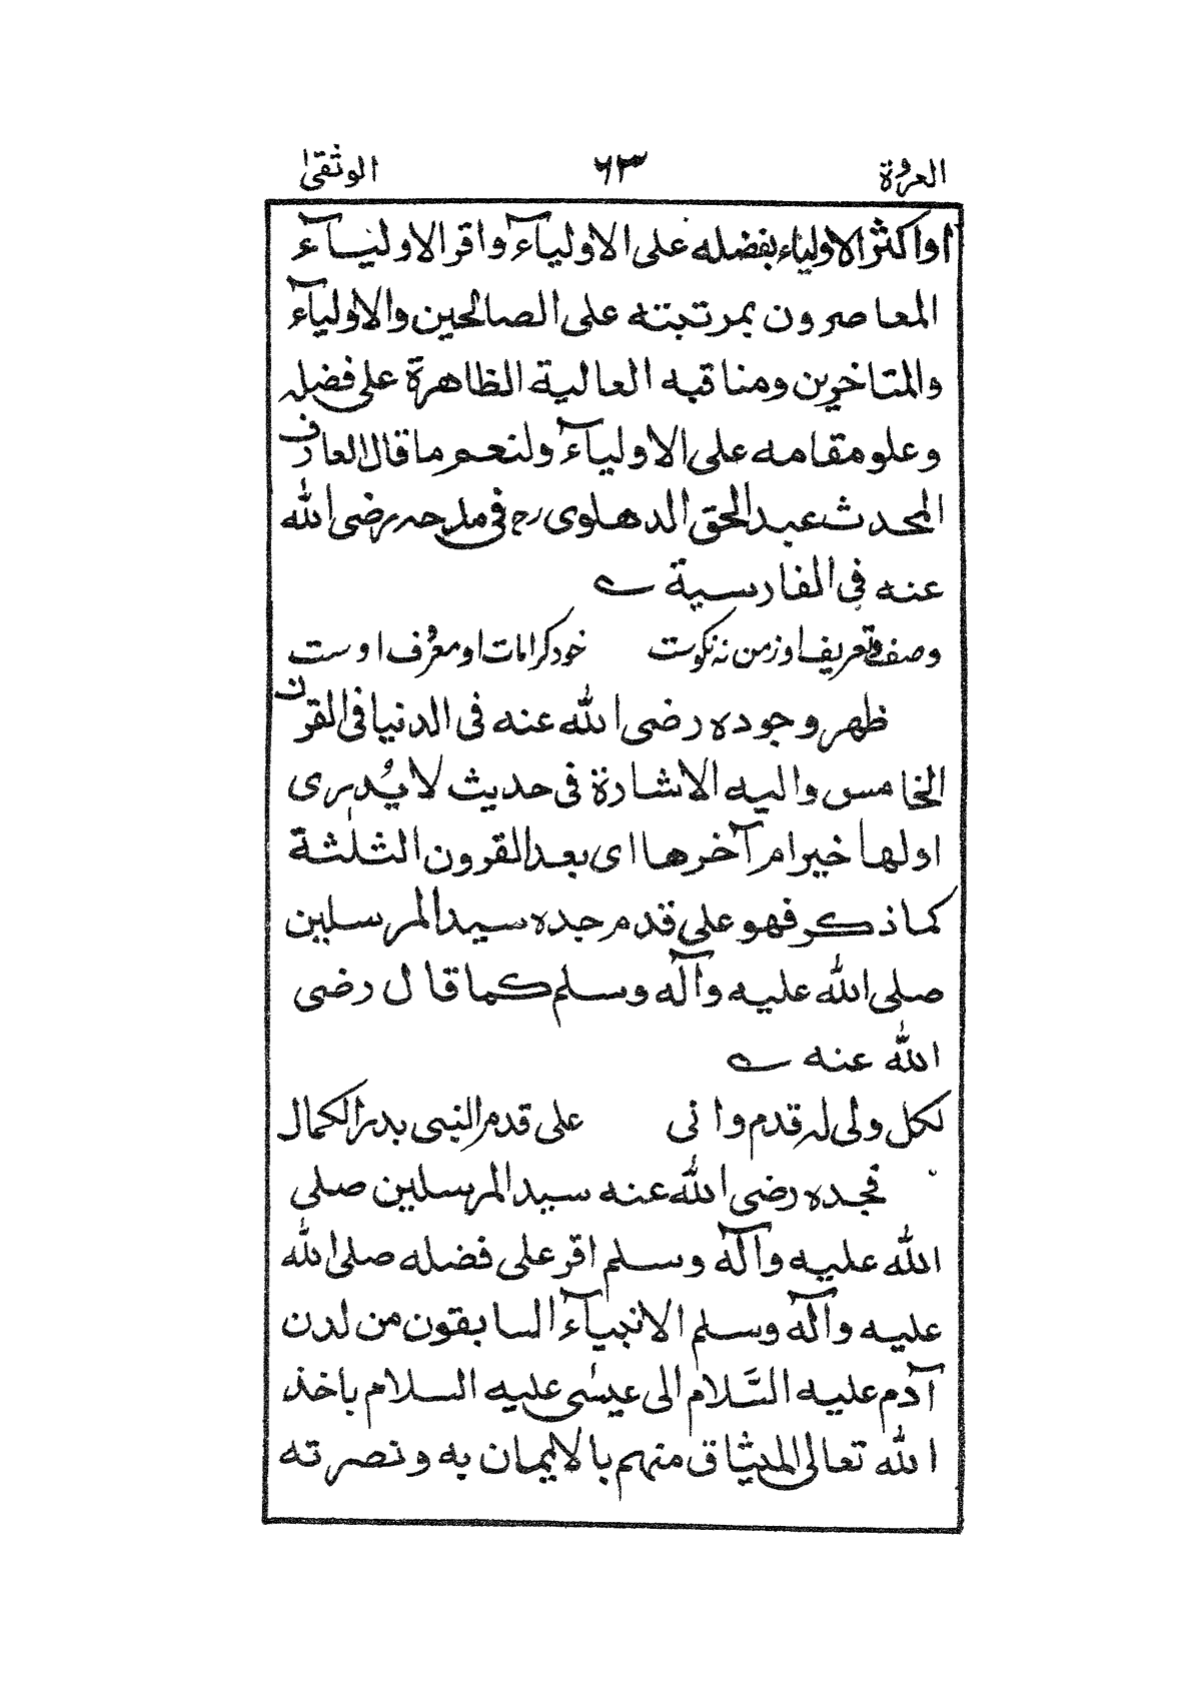 العروة ٦٣ الوثقىٰ
او اكثر الاولياء بفضله على الاوليآء واقر الاوليآء
المعاصرون بمرتبته على الصالحين والاوليآء
والمتاخرين ومناقبه العالية الظاهرة على فضله
وعلو مقامه على الاوليآء ولنعم ما قال العارف
المحدث عبد الحق الدهلوى رح فى مدحه رضى الله
عنه فى الفارسية ؎
وصف و تعريف او ز من نه نكوست خود كرامات او معرف اوست
ظهر وجوده رضى الله عنه فى الدنيا فى القرن
الخامس واليه الاشارة فى حديث لا يُدرى
اولها خير ام آخرها اى بعد القرون الثلٰثة
كما ذكر فهو على قدم جده سيد المرسلين
صلى الله عليه وآله وسلم كما قال رضى
الله عنه ؎
لكل ولى له قدم وانى على قدم النبى بدر الكمال
فجده رضى الله عنه سيد المرسلين صلى
الله عليه وآله وسلم اقر على فضله صلى الله
عليه وآله وسلم الانبيآء السابقون من لدن
آدم عليه السَّلام الى عيسٰى عليه السلام باخذ
الله تعالى الميثاق منهم بالايمان به ونصرته